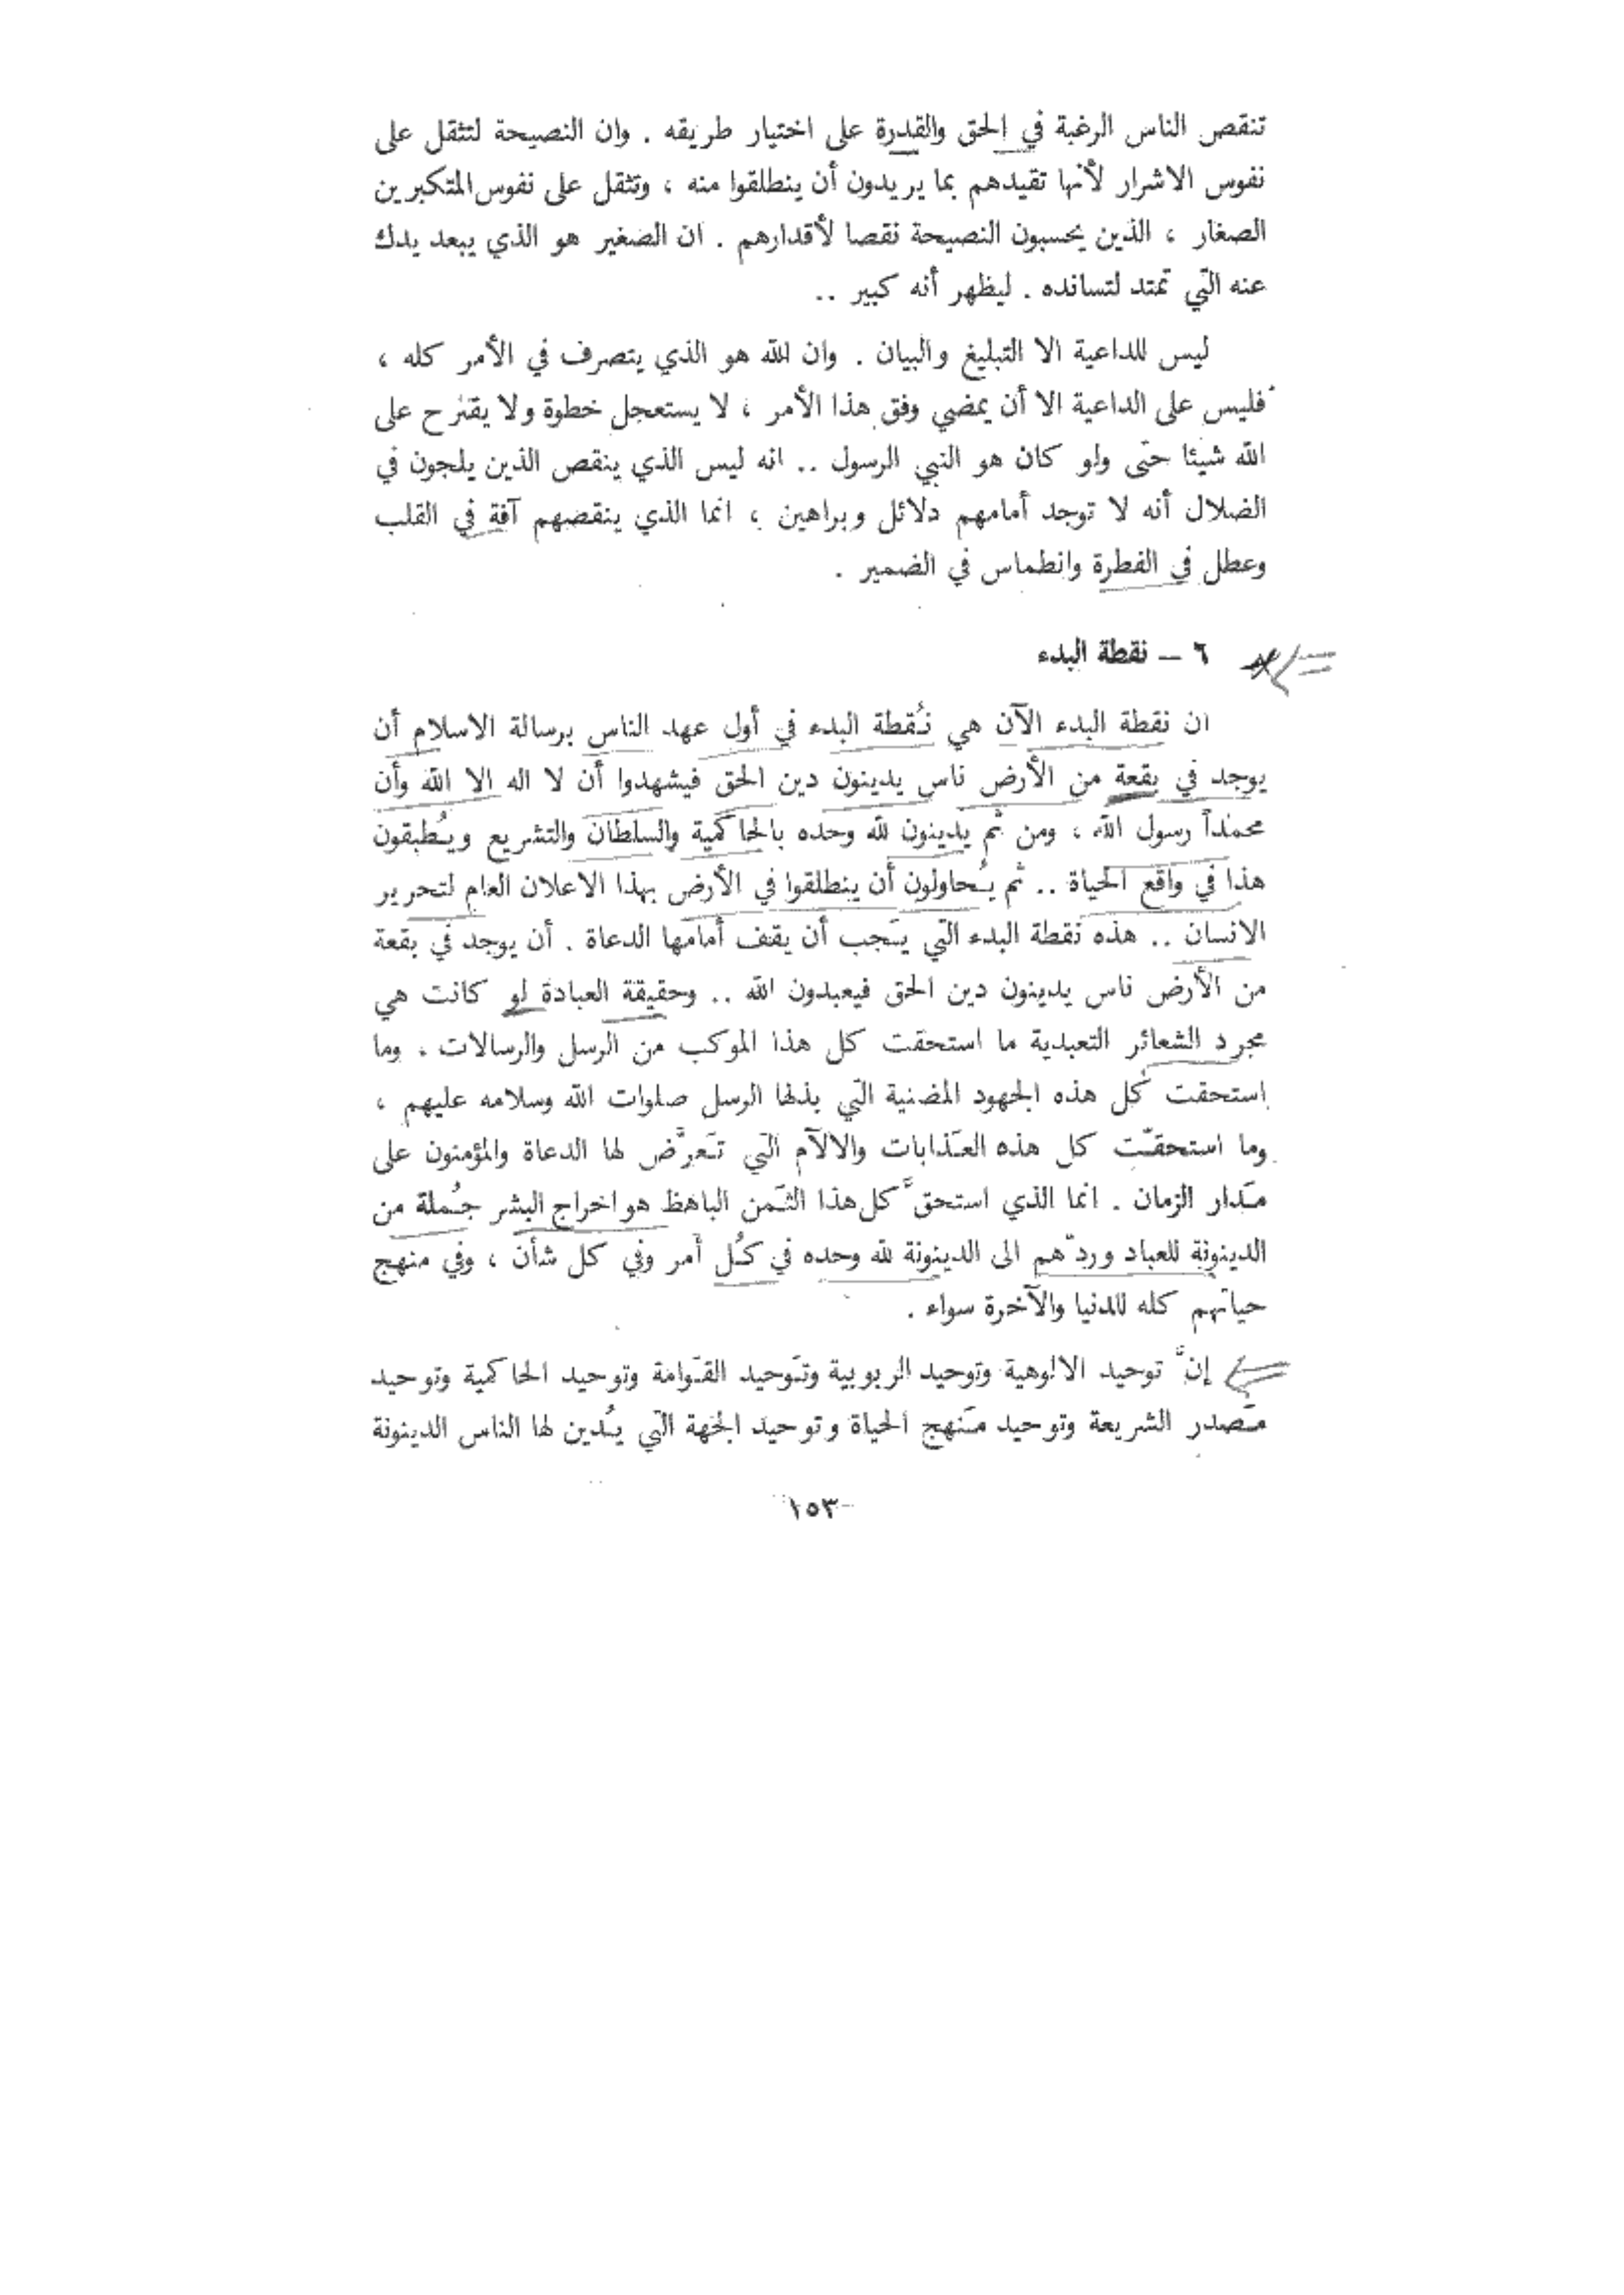 تنقص الناس الرغبة في الحق والقدرة على اختيار طريقه . وان النصيحة لتثقل على
نفوس الاشرار لأنها تقيدهم بما يريدون أن ينطلقوا منه ، وتثقل على نفوس المتكبرين
الصغار ، الذين يحسبون النصيحة نقصا لأقدارهم . ان الصغير هو الذي يبعد يدك
عنه التي تمتد لتسانده . ليظهر أنه كبير ..
ليس للداعية الا التبليغ والبيان . وان الله هو الذي يتصرف في الأمر كله ،
فليس على الداعية الا أن يمضي وفق هذا الأمر ، لا يستعجل خطوة ولا يقترح على
الله شيئا حتى ولو كان هو النبي الرسول .. انه ليس الذي ينقص الذين يلجون في
الضلال أنه لا توجد أمامهم دلائل وبراهين ، انما الذي ينقصهم آفة في القلب
وعطل في الفطرة وانطماس في الضمير .
٦ — نقطة البدء
ان نقطة البدء الآن هي نُقطة البدء في أول عهد الناس برسالة الاسلام أن
يوجد في بقعة من الأرض ناس يدينون دين الحق فيشهدوا أن لا اله الا الله وأن
محمداً رسول الله ، ومن ثم يدينون لله وحده بالحاكمية والسلطان والتشريع ويُطبقون
هذا في واقع الحياة .. ثم يُحاولون أن ينطلقوا في الأرض بهذا الاعلان العام لتحرير
الانسان .. هذه نقطة البدء التي يَجب أن يقف أمامها الدعاة . أن يوجد في بقعة
من الأرض ناس يدينون دين الحق فيعبدون الله .. وحقيقة العبادة لو كانت هي
مجرد الشعائر التعبدية ما استحقت كل هذا الموكب من الرسل والرسالات ، وما
استحقت كل هذه الجهود المضنية التي بذلها الرسل صلوات الله وسلامه عليهم ،
وما استحقّت كل هذه العَذابات والالآم التي تَعرَّض لها الدعاة والمؤمنون على
مَدار الزمان . انما الذي استحقَّ كل هذا الثَمن الباهظ هو اخراج البشر جُملة من
الدينونة للعباد وردّهم الى الدينونة لله وحده في كُل أمر وفي كل شأن ، وفي منهج
حياتهم كله للدنيا والآخرة سواء .
إنَّ توحيد الالوهية وتوحيد الربوبية وتَوحيد القَوامة وتوحيد الحاكمية وتوحيد
مَصدر الشريعة وتوحيد مَنهج الحياة وتوحيد الجهة التي يُدين لها الناس الدينونة
١٥٣